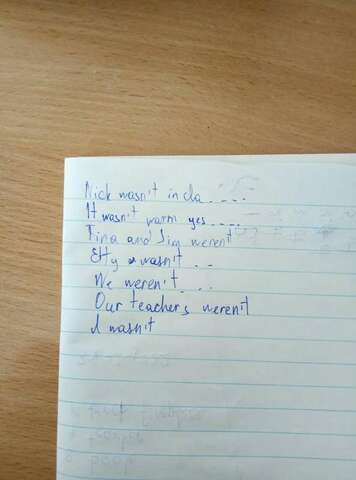 Nick wasn't in cla.....
It wasn't warm yes....
Tina and Jim weren't
Etty wasn't...
We weren't....
Our teachers weren't
I wasn't